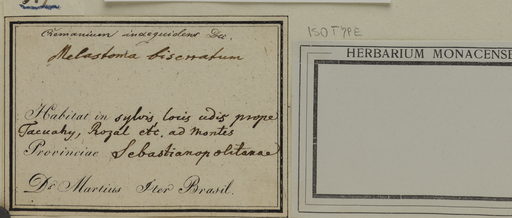 Cremanium inaequidens Dec.
Melastoma biserratum
Habitat in sylvis locis udis prope
Tacuahy, Rozal etc. ad montes
Provinciae Sebastianopolitanae
Dr Martius Iter Brasil.
ISOTYPE
HERBARIUM MONACENSE